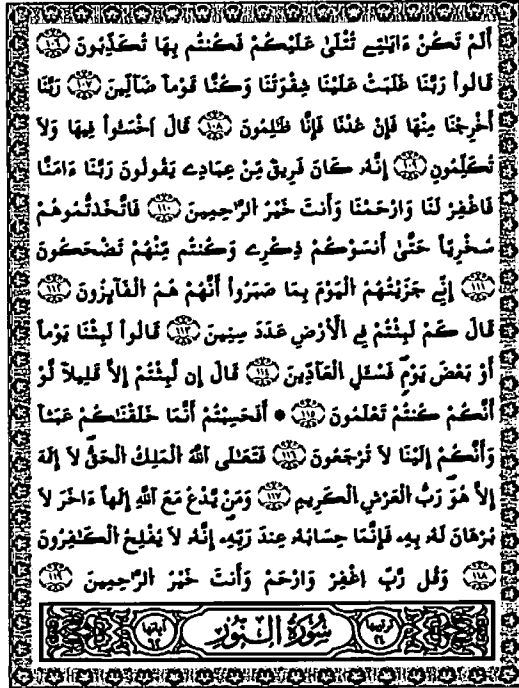 أَلَمْ تَكُنْ ءَايَٰتِے تُتْلَىٰ عَلَيْكُمْ فَكُنتُم بِهَا تُكَذِّبُونَ ١٠٦
قَالُواْ رَبَّنَا غَلَبَتْ عَلَيْنَا شِقْوَتُنَا وَكُنَّا قَوْماً ضَآلِّينَ ١٠٧ رَبَّنَا
أَخْرِجْنَا مِنْهَا فَإِنْ عُدْنَا فَإِنَّا ظَٰلِمُونَ ١٠٨ قَالَ اَخْسَـُٔواْ فِيهَا وَلَا
تُكَلِّمُونِ ١٠٩ إِنَّهُۥ كَانَ فَرِيقٌ مِّنْ عِبَادِے يَقُولُونَ رَبَّنَا ءَامَنَّا
فَاغْفِرْ لَنَا وَارْحَمْنَا وَأَنتَ خَيْرُ الرَّٰحِمِينَ ١١٠ فَاتَّخَذتُّمُوهُمْ
سُخْرِيّاً حَتَّىٰ أَنسَوْكُمْ ذِكْرِے وَكُنتُم مِّنْهُمْ تَضْحَكُونَ
١١١ إِنِّے جَزَيْتُهُمُ الْيَوْمَ بِمَا صَبَرُواْ أَنَّهُمْ هُمُ الْفَآئِزُونَ ١١٢
قَالَ كَمْ لَبِثْتُمْ فِے الْأَرْضِ عَدَدَ سِنِينَ ١١٣ قَالُواْ لَبِثْنَا يَوْماً
أَوْ بَعْضَ يَوْمٍ فَسْـَٔلِ الْعَآدِّينَ ١١٤ قَالَ إِن لَّبِثْتُمْ إِلَّا قَلِيلاً لَّوْ
أَنَّكُمْ كُنتُمْ تَعْلَمُونَ ١١٥ * أَفَحَسِبْتُمْ أَنَّمَا خَلَقْنَٰكُمْ عَبَثاً
وَأَنَّكُمْ إِلَيْنَا لَا تُرْجَعُونَ ١١٦ فَتَعَٰلَى اَللَّهُ الْمَلِكُ الْحَقُّ لَا إِلَٰهَ
إِلَّا هُوَ رَبُّ الْعَرْشِ الْكَرِيمِ ١١٧ وَمَنْ يَّدْعُ مَعَ اَللَّهِ إِلَٰهاً ءَاخَرَ لَا
بُرْهَانَ لَهُۥ بِهِۦ فَإِنَّمَا حِسَابُهُۥ عِندَ رَبِّهِۦ إِنَّهُۥ لَا يُفْلِحُ الْكَٰفِرُونَ
١١٨ وَقُل رَّبِّ اِغْفِرْ وَارْحَمْ وَأَنتَ خَيْرُ الرَّٰحِمِينَ ١١٩
ترتيبها ٢٤ سُورَةُ النُّورِ آياتها ٦٢